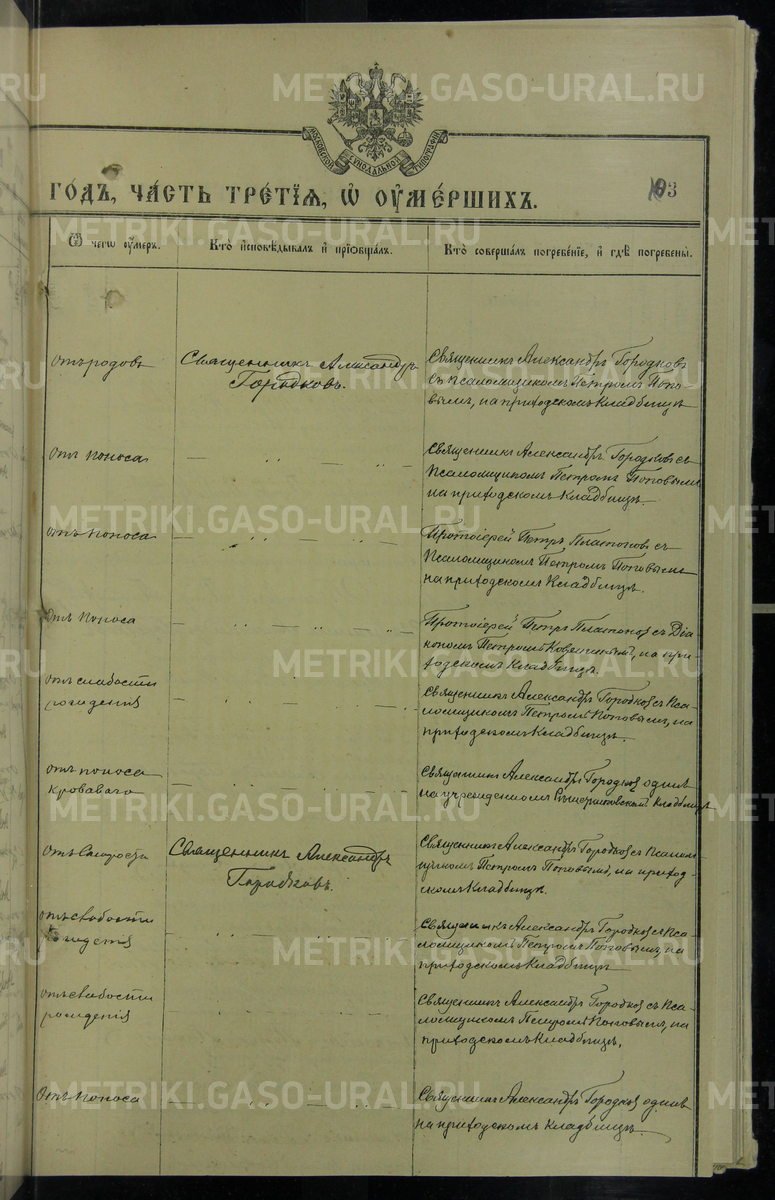 METRIKI.GASO-URAL.RU
МОСКОВСКОЙ СѴНОДАЛЬНОЙ ТИПОГРАФІИ
ГОДЪ, ЧАСТЬ ТРЕТІЯ, Ѡ ОУМЕРШИХЪ.
103
Ѿ чегѡ оумеръ.
Кто исповѣдывалъ и пріобщалъ.
Кто совершалъ погребеніе, и гдѣ погребены.
отъ родовъ
Священникъ Александръ
Городковъ.
Священникъ Александръ Городковъ
съ псаломщикомъ Петромъ Попо-
вымъ, на приходскомъ кладбищѣ
отъ поноса
Священникъ Александръ Городковъ съ
Псаломщикомъ Петромъ Поповымъ
на приходскомъ кладбищѣ.
отъ поноса
Протоіерей Петръ Платоновъ съ
Псаломщикомъ Петромъ Поповымъ
на приходскомъ кладбищѣ.
отъ поноса
Протоіерей Петръ Платоновъ съ Діа
кономъ Петромъ на при-
ходскомъ кладбищѣ.
отъ слабости
рожденія
Священникъ Александръ Городковъ съ Пса-
ломщикомъ Петромъ Поповымъ, на
приходскомъ кладбищѣ.
отъ поноса
кроваваго
Священникъ Александръ Городковъ одинъ
на учрежденномъ кладбищѣ
отъ старости
Священникъ Александръ
Городковъ.
Священникъ Александръ Городковъ съ Псалом-
щикомъ Петромъ Поповымъ, на приход-
скомъ кладбищѣ.
отъ слабости
рожденія
Священникъ Александръ Городковъ съ Пса-
ломщикомъ Петромъ Поповымъ, на
приходскомъ кладбищѣ
отъ слабости
рожденія
Священникъ Александръ Городковъ съ Пса-
ломщикомъ Петромъ Поповымъ, на
приходскомъ кладбищѣ.
отъ поноса
Священникъ Александръ Городковъ одинъ
на приходскомъ кладбищѣ.